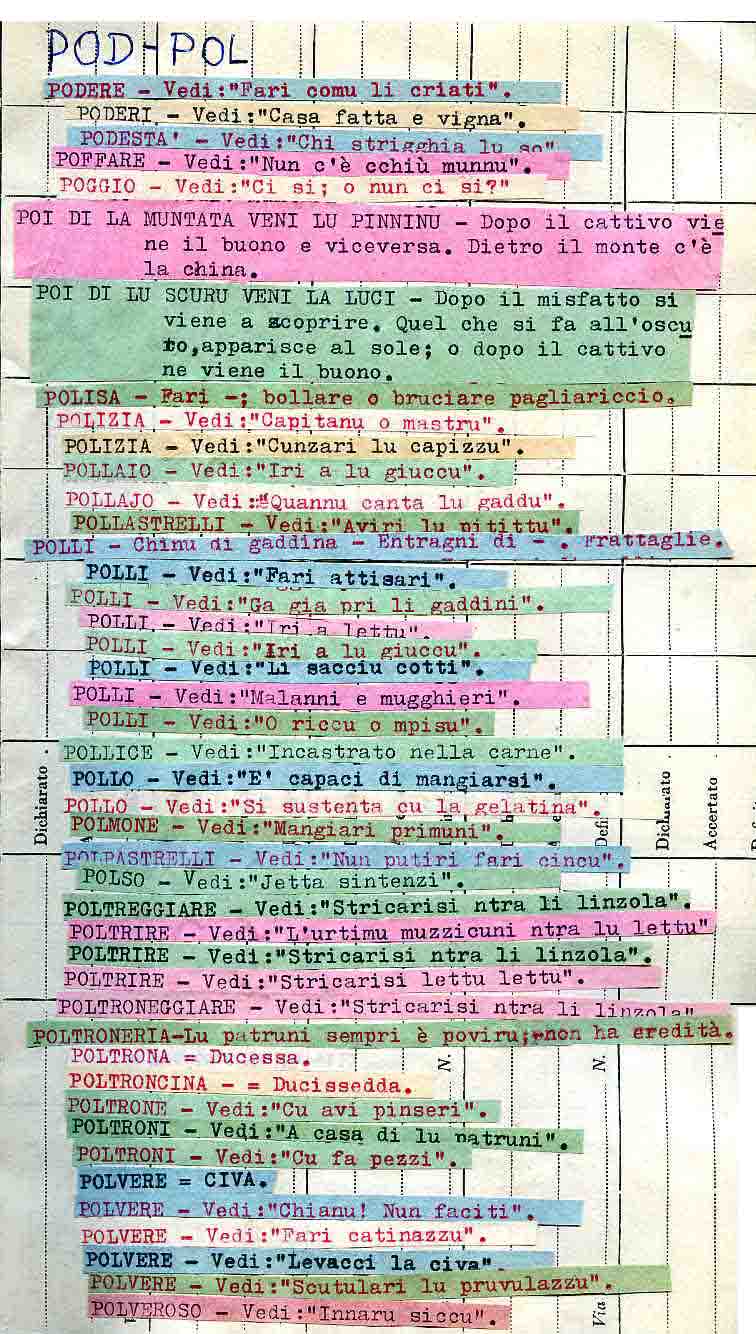 POD-POL
PODERE - Vedi:"Fari comu li criati".
PODERI - Vedi:"Casa fatta e vigna".
PODESTA' - Vedi:"Chi strigghia lu so"
POFFARE - Vedi:"Nun c'è cchiù munnu".
POGGIO - Vedi:"Ci si; o nun ci si?"
POI DI LA MUNTATA VENI LU PINNINU - Dopo il cattivo vie
ne il buono e viceversa. Dietro il monte c'è
la china.
POI DI LU SCURU VENI LA LUCI - Dopo il misfatto si
viene a scoprire. Quel che si fa all'oscu
ro, apparisce al sole; o dopo il cattivo
ne viene il buono.
POLISA - Fari -; bollare o bruciare pagliariccio.
POLIZIA - Vedi:"Capitanu o mastru".
POLIZIA - Vedi:"Cunzari lu capizzu".
POLLAIO - Vedi:"Iri a lu giuccu".
POLLAJO - Vedi:"Quannu canta lu gaddu".
POLLASTRELLI - Vedi:"Aviri lu pitittu".
POLLI - Chinu di gaddina - Entragni di - . Frattaglie.
POLLI - Vedi:"Fari attisari".
POLLI - Vedi:"Ga gia pri li gaddini".
POLLI - Vedi:"Iri a lettu".
POLLI - Vedi:"Iri a lu giuccu".
POLLI - Vedi:"Li sacciu cotti".
POLLI - Vedi:"Malanni e mugghieri".
POLLI - Vedi:"O riccu o mpisu".
POLLICE - Vedi:"Incastrato nella carne".
POLLO - Vedi:"E' capaci di mangiarsi".
POLLO - Vedi:"Si sustenta cu la gelatina".
POLMONE - Vedi:"Mangiari primuni".
POLPASTRELLI - Vedi:"Nun putiri fari cincu".
POLSO - Vedi:"Jetta sintenzi".
POLTREGGIARE - Vedi:"Stricarisi ntra li linzola".
POLTRIRE - Vedi:"L'urtimu muzzicuni ntra lu lettu"
POLTRIRE - Vedi:"Stricarisi ntra li linzola".
POLTRIRE - Vedi:"Stricarisi lettu lettu".
POLTRONEGGIARE - Vedi:"Stricarisi ntra li linzola"
POLTRONERIA-Lu patruni sempri è poviru; non ha eredità.
POLTRONA = Ducessa.
POLTRONCINA - = Ducissedda.
POLTRONE - Vedi:"Cu avi pinseri".
POLTRONI - Vedi:"A casa di lu patruni".
POLTRONI - Vedi:"Cu fa pezzi".
POLVERE = CIVA.
POLVERE - Vedi:"Chianu! Nun faciti".
POLVERE - Vedi:"Fari catinazzu".
POLVERE - Vedi:"Levacci la civa".
POLVERE - Vedi:"Scutulari lu pruvulazzu".
POLVEROSO - Vedi:"Innaru siccu".
Dichiarato
Defi
Dichiarato
Accertato
N.
N.
Via